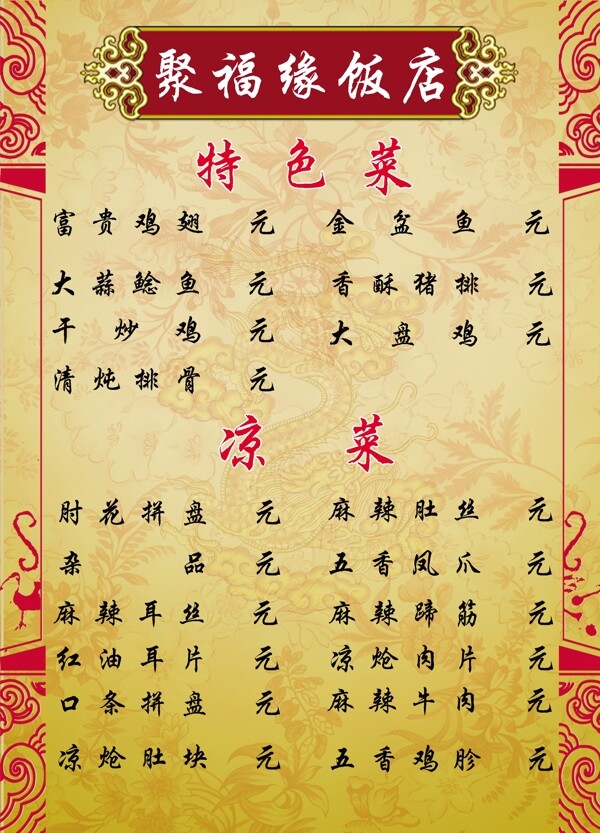 聚福缘饭店
特色菜
富贵鸡翅 元 金盆鱼 元
大蒜鲶鱼 元 香酥猪排 元
干炒鸡 元 大盘鸡 元
清炖排骨 元
凉菜
肘花拼盘 元 麻辣肚丝 元
杂品 元 五香凤爪 元
麻辣耳丝 元 麻辣蹄筋 元
红油耳片 元 凉炝肉片 元
口条拼盘 元 麻辣牛肉 元
凉炝肚块 元 五香鸡胗 元